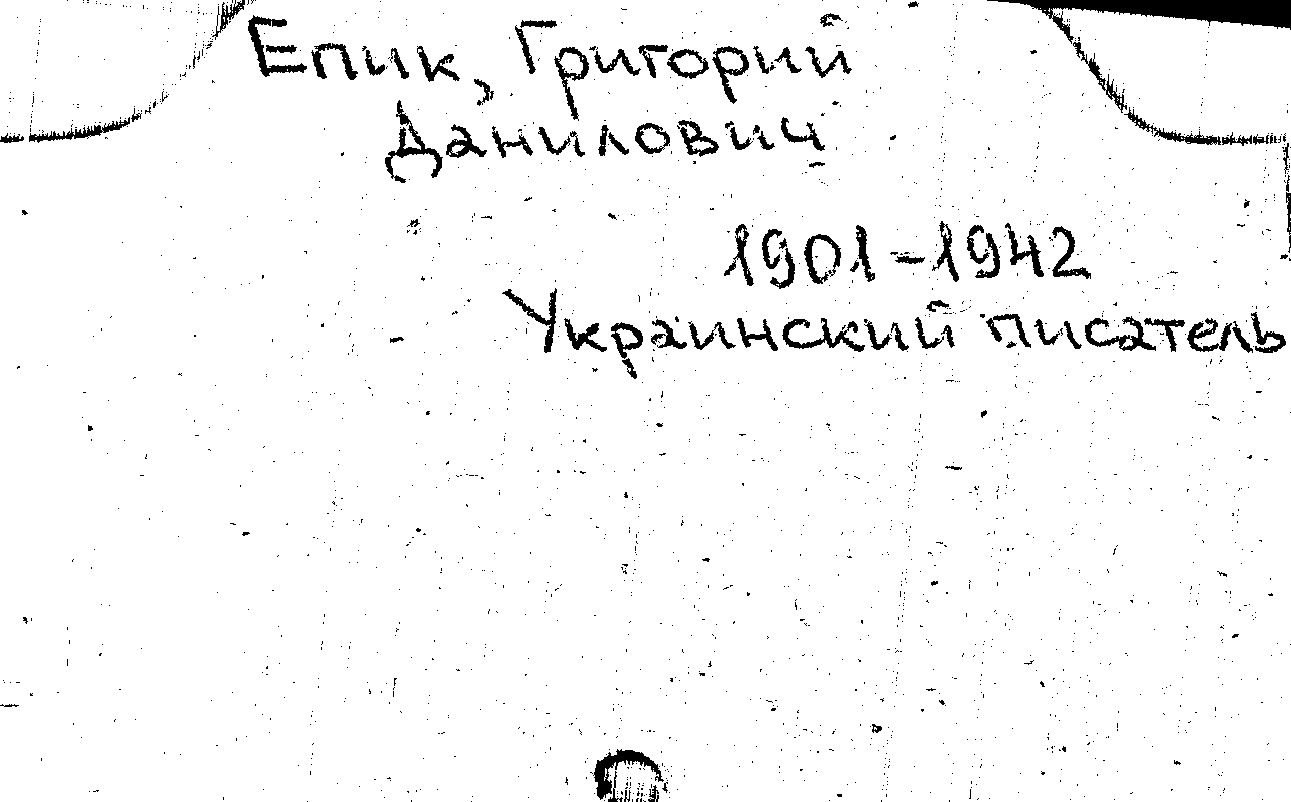 Епик, Григорий
Данилович
1901-1942
Украинский писатель